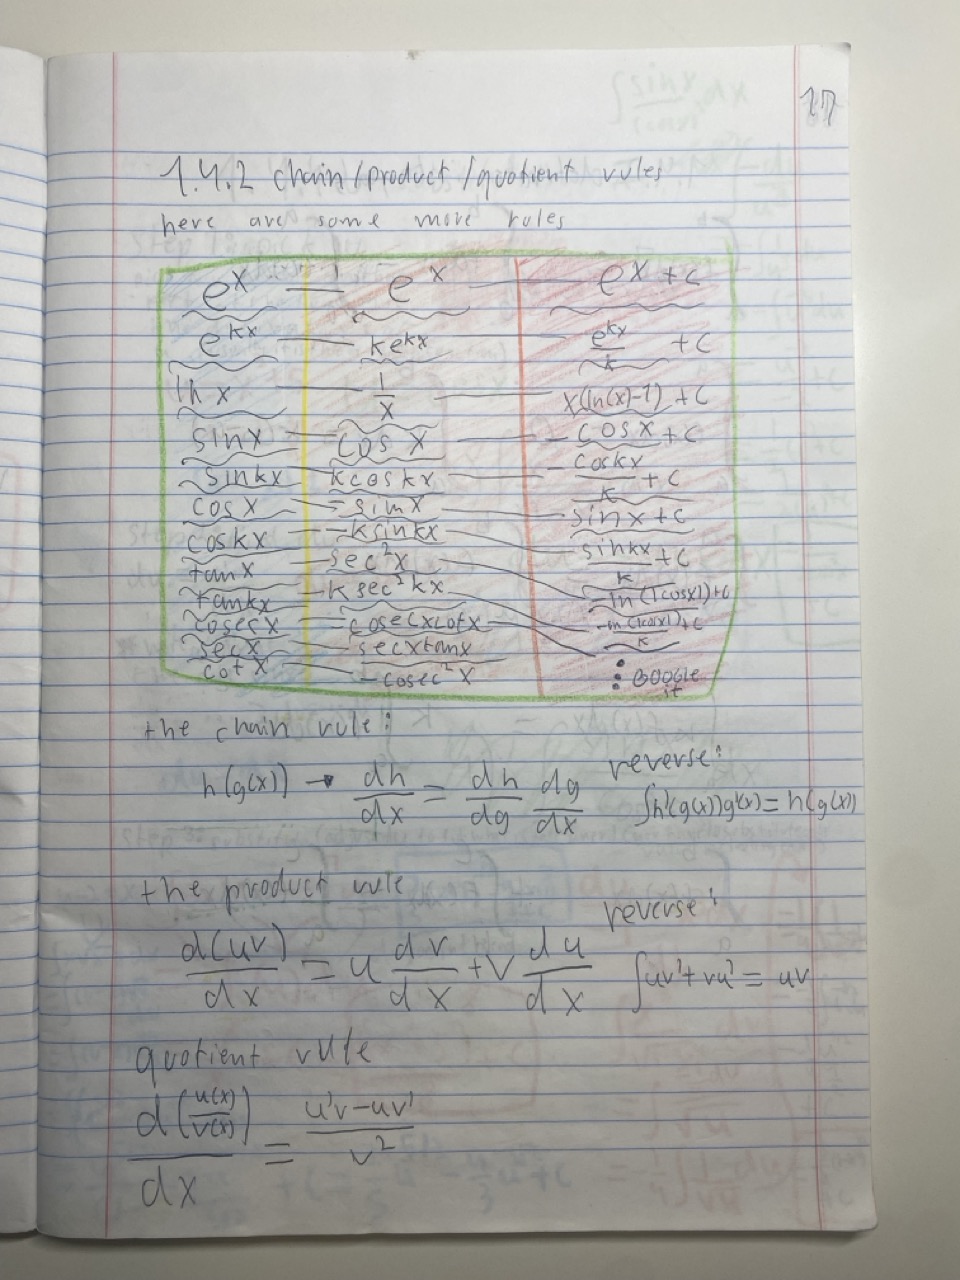 17
1.4.2 chain/product/quotient rules
here are some more rules
e^x — e^x — e^x + c
e^{kx} — ke^{kx} — e^{kx}/k + c
ln x — 1/x — x(ln(x)-1) + c
sinx — cos x — -cosx + c
sinkx — kcoskx — -coskx/k + c
cosx — -sinx — sinx + c
coskx — -ksinkx — sinkx/k + c
tanx — sec²x — -ln(|cosx|)+c
tankx — k sec²kx —
cosecx — -cosecxcotx
secx — secxtanx
cotx — -cosec²x
⋮ GOOGLE it
the chain rule:
h(g(x)) → dh/dx = dh/dg dg/dx
reverse:
∫h'(g(x))g'(x) = h(g(x))
the product rule
d(uv)/dx = u dv/dx + v du/dx
reverse:
∫uv'+vu' = uv
quotient rule
d(u(x)/v(x))/dx = u'v-uv'/v²